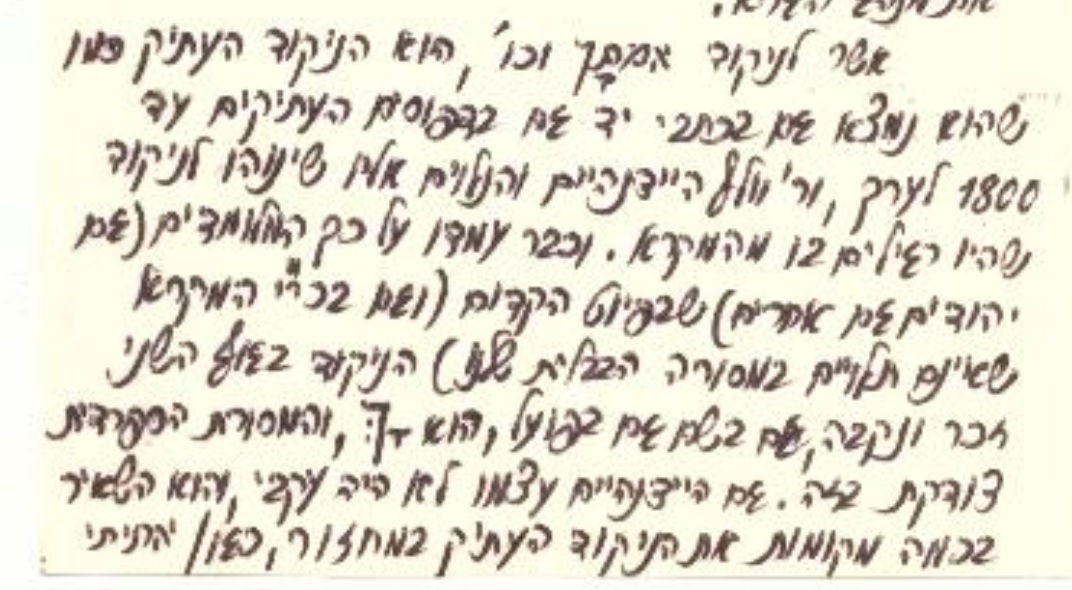 את מנהג
אשר לניקוד אמתך וכו', הוא הניקוד העתיק כפי
שהוא נמצא גם בכתבי יד גם בדפוסים העתיקים עד
1800 לערך, ור' וולף היידנהיים והנלוים אליו שינוהו לניקוד
שהיו רגילים בו מהמקרא. וכבר עמדו על כך המלומדים (גם
יהודים גם אחרים) שבפיוט הקדום (וגם בכ"י המקרא
שאינם תלויים במסורה הבבלית שלנו) הניקוד בגוף השני
זכר ונקבה, גם בשם גם בפועל, הוא ָךְ, והמסורת הספרדית
צודקת בזה. גם היידנהיים עצמו לא היה עקבי, והוא השאיר
בכמה מקומות את הניקוד העתיק במחזור, כגון אתיתי